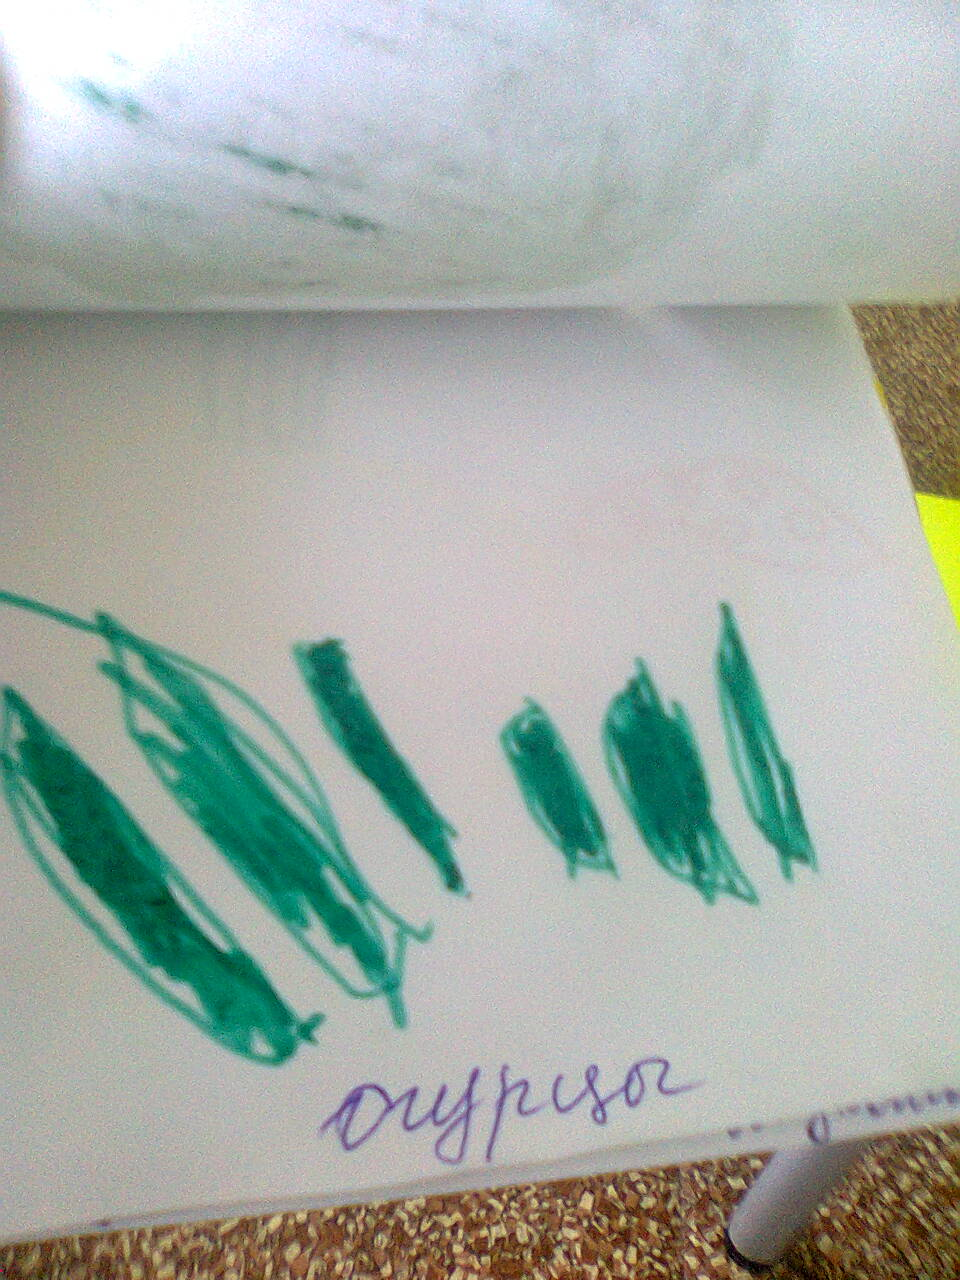 огурцы